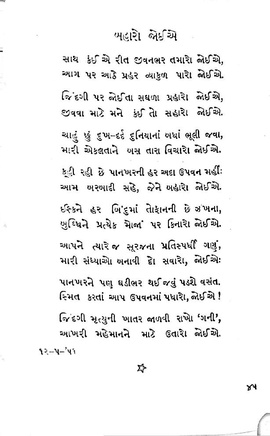 બહારો જોઈએ
સાથ કંઈ એ રીત જીવનભર તમારો જોઈએ,
આગ પર આઠે પ્રહર વ્યાકુળ પારો જોઈએ.
જિંદગી પર જોઈતા સઘળા પ્રહારો જોઈએ,
જીવવા માટે મને કંઈ તો સહારો જોઈએ.
ચાહું છું દુઃખ-દર્દ દુનિયાનાં બધાં ભૂલી જવા,
મારી એકલતાને બસ તારા વિચારો જોઈએ.
કહી રહી છે પાનખરની હર અદા ઉપવન મહીં:
આમ બરબાદી સહે, જેને બહારો જોઈએ.
ઇશ્કને હર બિંદુમાં તોફાનની છે ઝંખના,
બુધ્ધિને પ્રત્યેક મોજા પર કિનારો જોઈએ.
આપને ત્યારે જ સૂરજના પ્રતિસ્પર્ધી ગણું,
મારી સંધ્યાઓ બનાવી દો સવારો, જોઈએ.
પાનખરને પણ ઘડીભર થઈ જવું પડશે વસંત.
સ્મિત કરતાં આપ ઉપવનમાં પધારો, જોઈએ !
જિંદગી મૃત્યુની ખાતર જાળવી રાખો 'ગની',
આખરી મહેમાનને માટે ઉતારો જોઈએ.
૧૨-૫-'૫૧
૪૫